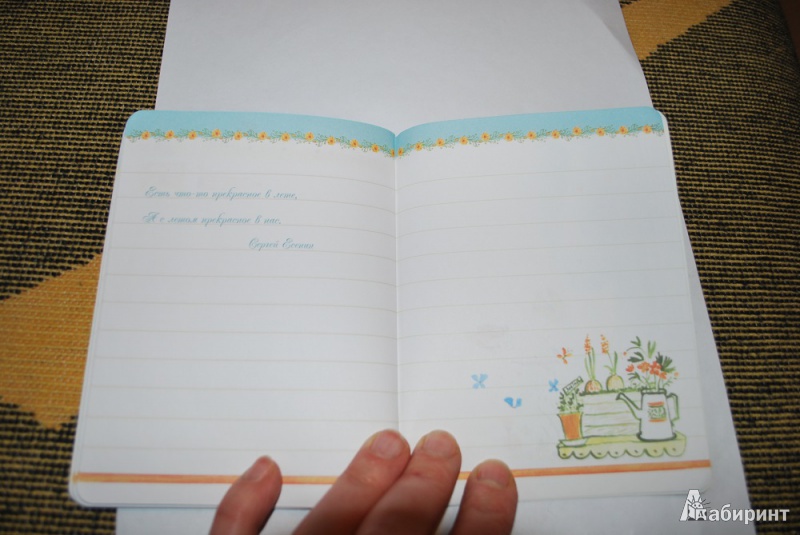 Есть что-то прекрасное в лете,
А с летом прекрасное в нас.
Сергей Есенин
Лабиринт